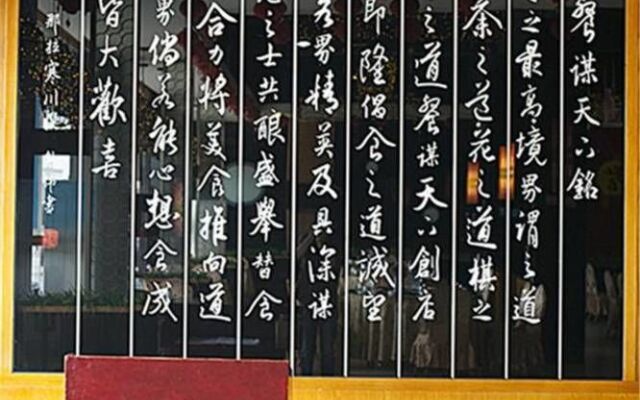 餐谋天下銘
之最高境界谓之道
茶之道花之道棋之
之道餐谋天下創店
即隆倡食之道誠望
各界精英及具深谋
之士共酿盛舉替食
合力將美食推向道
界倘若能心想食成
皆大歡喜
那拉寒川
书